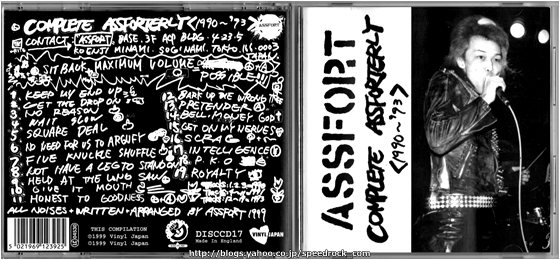 © COMPLETE ASSFORTERLY <1990~'93>
ASSFORT
CONTACT, ASSFORT BASE. 3F
4-23-5
KOENJI MINAMI. SUGINAMI. TOKYO. 166-0003
JAPAN
SIT BACK, MAXIMUM VOLUME
POSSIBLE!!!
1. KEEP MY END UP
2. GET THE DROP ON
3. NO REASON
4. WAIT SLOW
5. SQUARE DEAL
6. NO NEED FOR US TO ARGUFY
7. FIVE KNUCKLE SHUFFLE
8. NOT HAVE A LEG TO STAND ON
9. HELD AT THE LONG SAW
10. GIVE IT MOUTH
11. HONEST TO GOODNESS
12. BARK UP THE WRONG
13. PRETENDER
14. HELL-MONEY GOD!
15. GET ON MY NERVES
16. SCRAG
17. INTELLIGENCE
18. P.K.O
19. ROYALTY
ALL NOISES・WRITTEN・ARRANGED BY ASSFORT 1999
5 021969 123925
THIS COMPILATION
©1999 Vinyl Japan
℗1999 Vinyl Japan
DISCCD17
Made In England
VINYL JAPAN
ASSFORT
COMPLETE ASSFORTERLY
<1990~'93>
http://blogs.yahoo.co.jp/speedrock_com